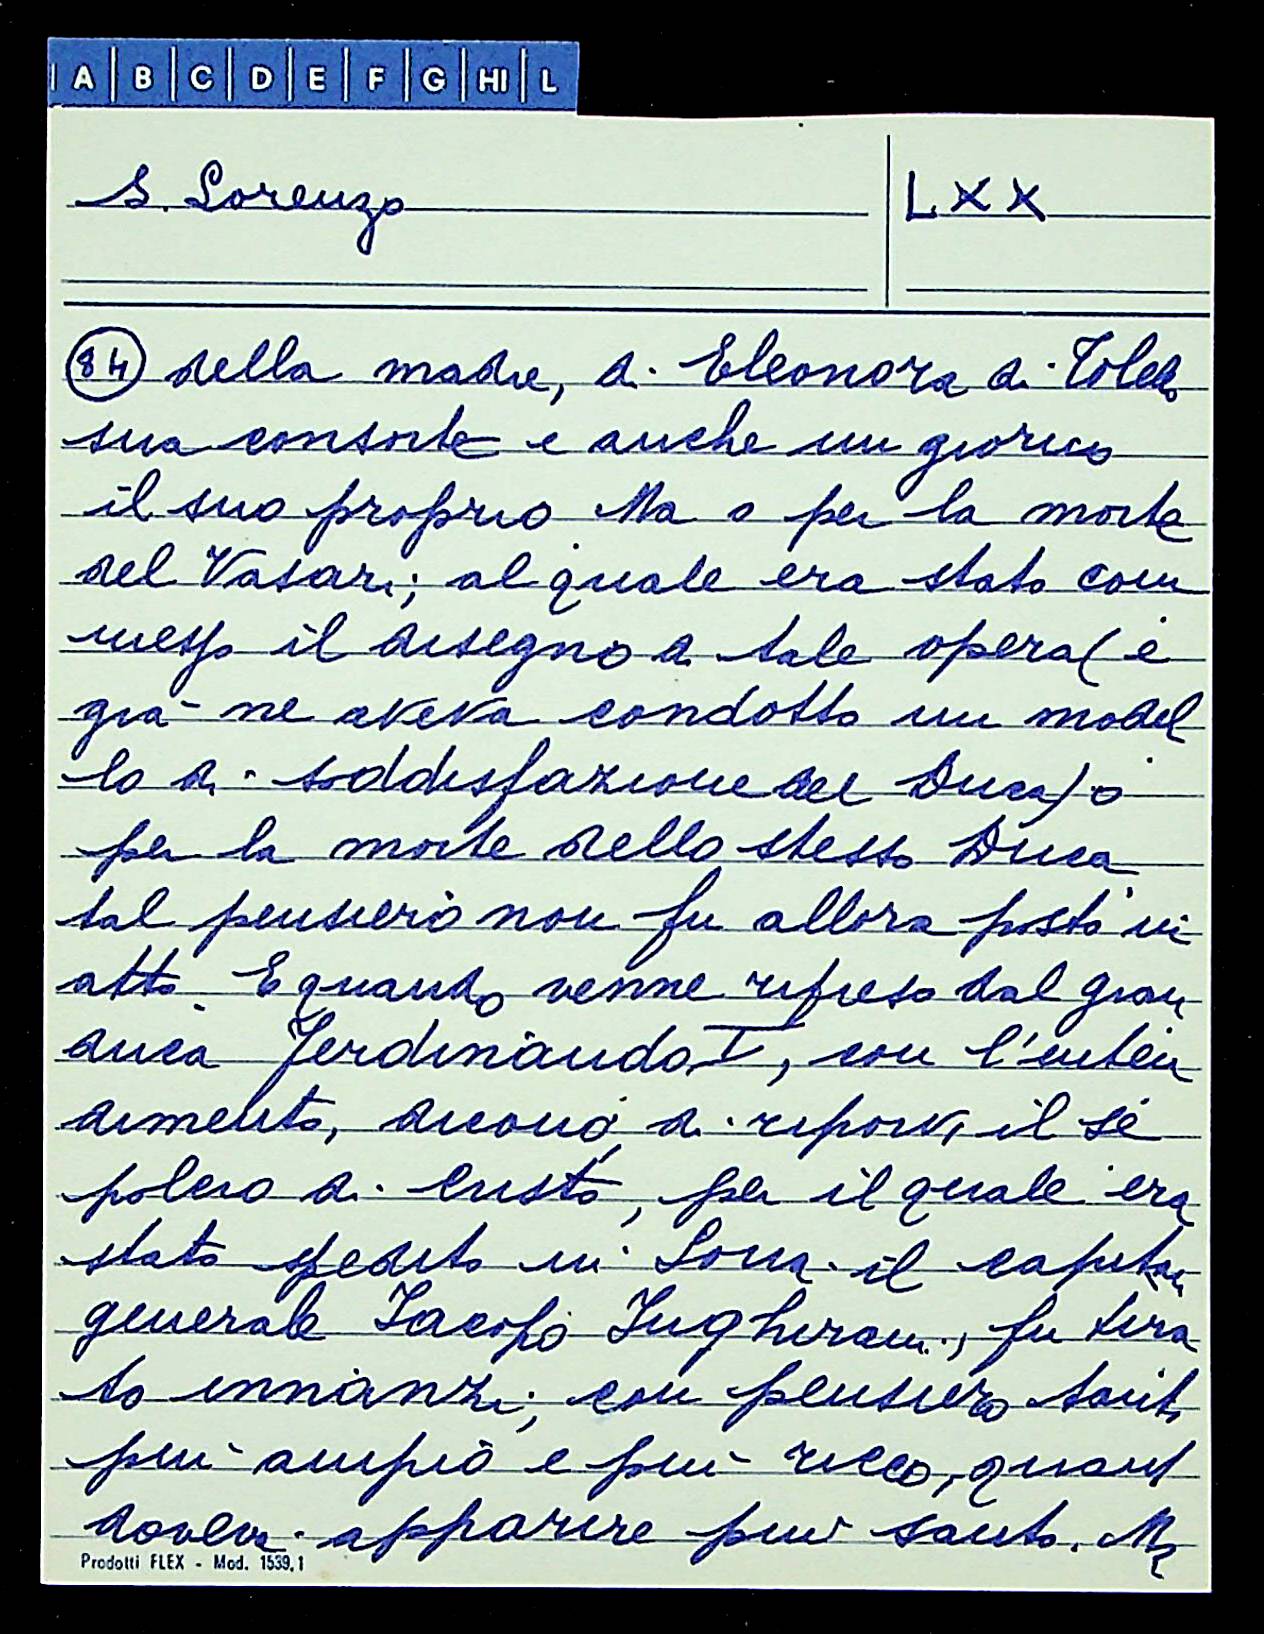 A B C D E F G HI L
S. Lorenzo
LXX
84 della madre, di Eleonora di Toledo
sua consorte e anche un giorno
il suo proprio Ma o per la morte
del Vasari; al quale era stato com
messo il disegno di tale opera (e
già ne aveva condotto un model
lo di soddisfazione del Duca) o
per la morte dello stesso Duca
tal pensiero non fu allora posto in
atto. E quando venne ripreso dal gran
duca Ferdinando I, con l'inten
dimento, dicono, di riporvi il se
polcro di Cristo, per il quale era
stato spedito in Soria il capitan
generale Iacopo Inghirami, fu tira
to innanzi; con pensiero tanto
più ampio e più ricco, quant
doveva apparire più santo. Ma
Prodotti FLEX - Mod. 1539,1